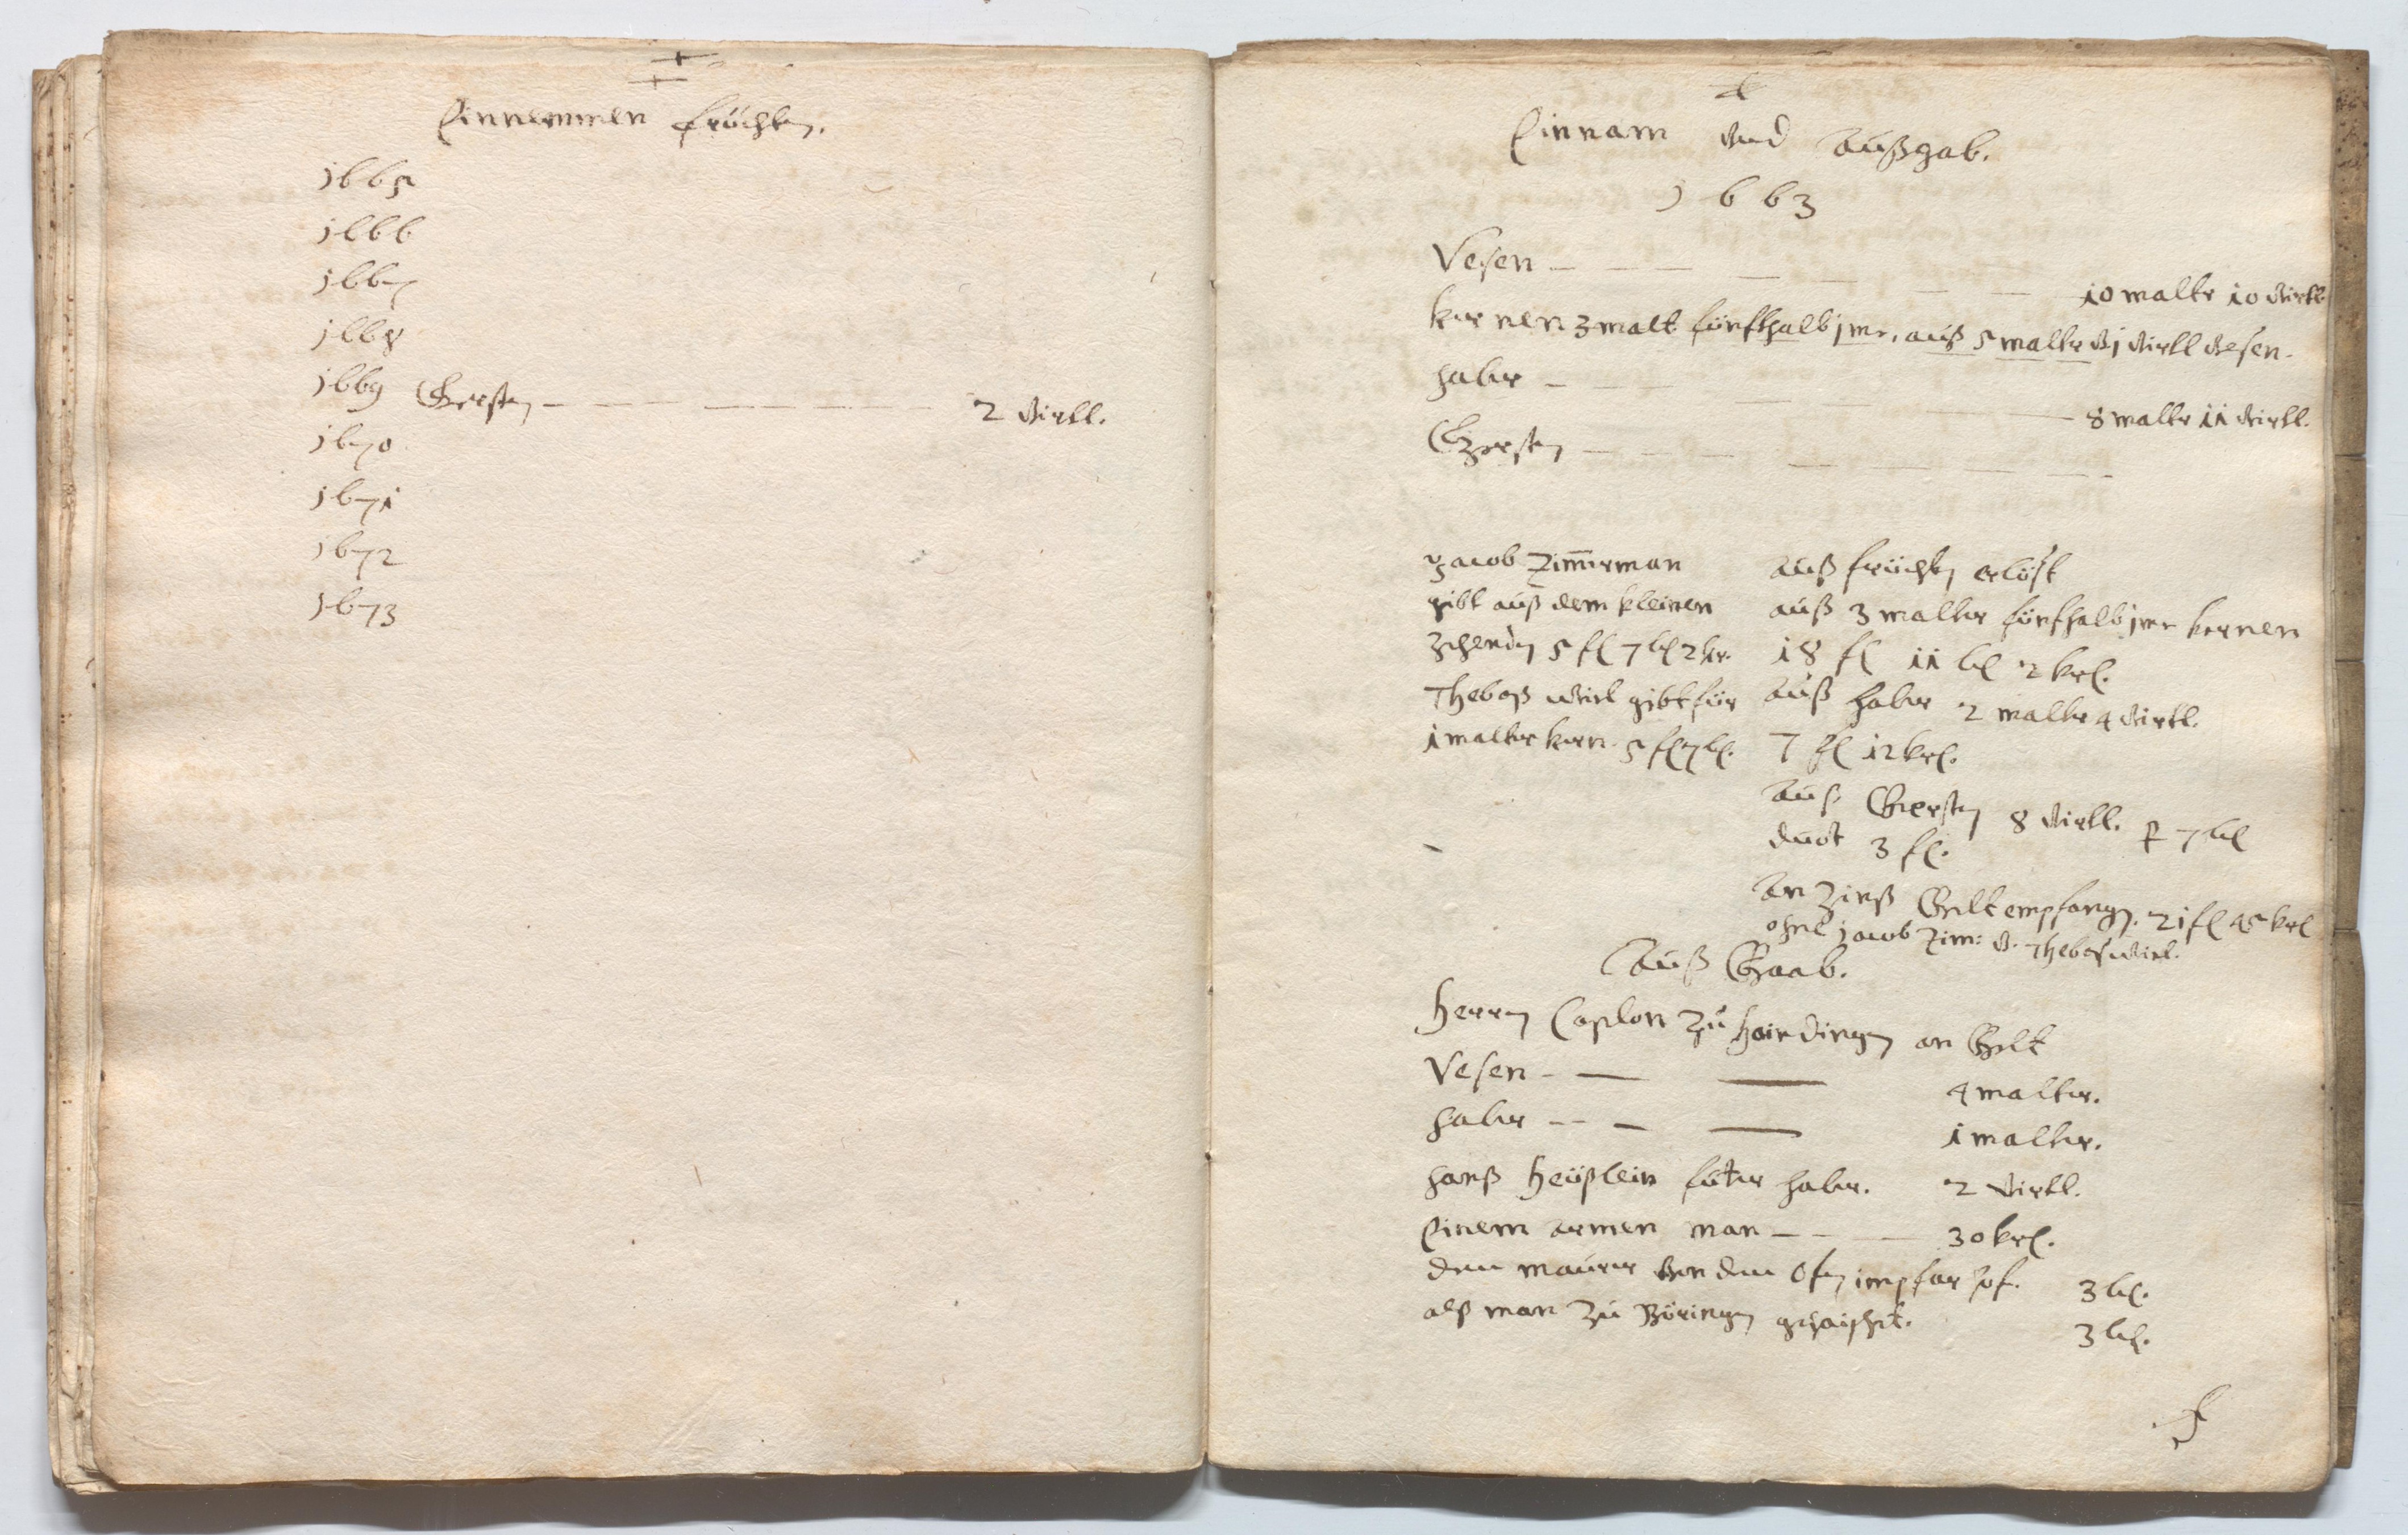 Einnemmen früchten.
1665
1666
1667
1668
1669 Gersten — — — — — 2 virtl.
1670
1671
1672
1673
Einnam vnd Außgab.
1663
Vesen — — — — — — 10 maltr 10 virtl.
kernen 3 malt fünfthalb jmr, auß 5 maltr vj virtl vesen.
haber — — — — — 8 maltr 11 virtl.
Gersten — — — — — —
Jacob Zimmerman
gibt auß dem kleinen
Zehenden 5 fl 7 bz 2 kr.
Thebaß gibt für
1 malter kern. 5 fl 7 bz.
Auß früchten erlöst
auß 3 malter fünfhalb jmr kernen
18 fl 11 bz 2 krz.
Auß haber 2 maltr 4 virtl.
7 fl 12 krz.
Auß Gersten 8 virtl. p 7 bz
duot 3 fl.
An Zinß Gelt empfangen. 21 fl 45 krz
ohne jacob Zim: v.
Auß Gaab.
Herren Caplon zu an Gelt
Vesen — — — 4 malter.
haber — — — 1 malter.
hanß Heüßlein futer haber. 2 virtl.
Einem armen man — — — 30 krz.
dem maurer von dem ofen im pfarhof. 3 bz.
alß man zu 3 bz.